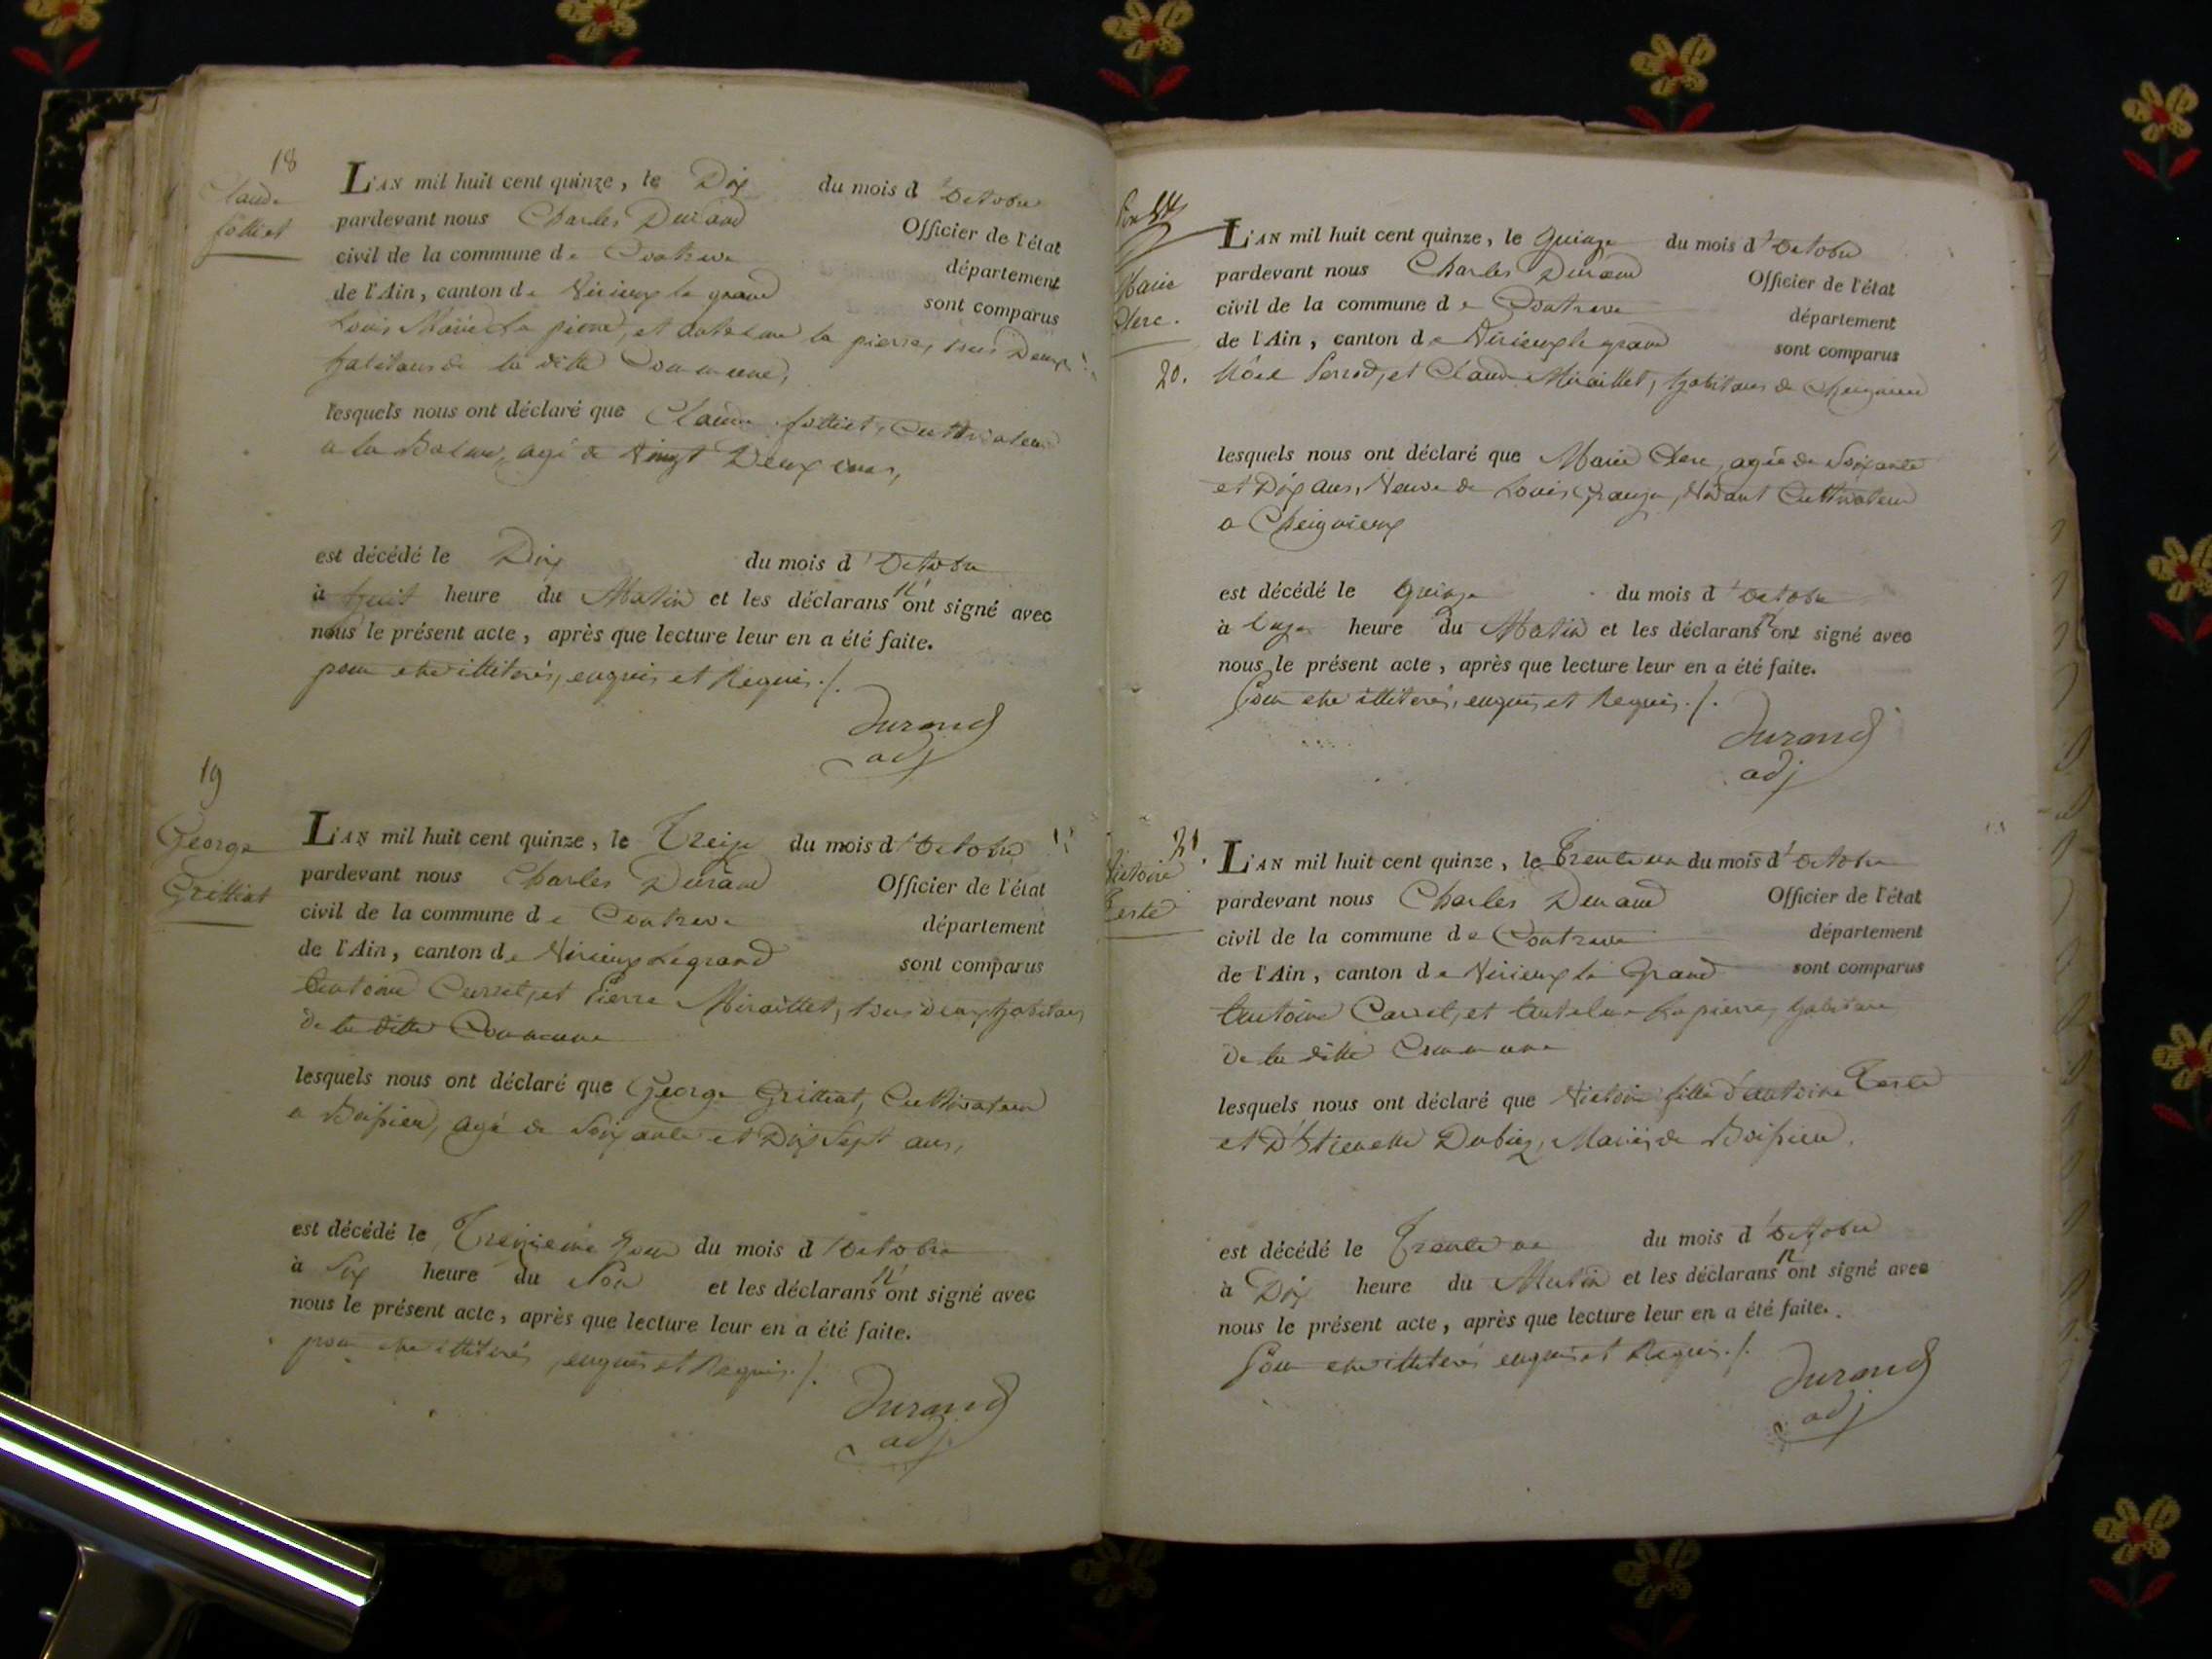 18
Claude
folliet
L'AN mil huit cent quinze, le Dix du mois d'octobre
pardevant nous Charles Durand Officier de l'état
civil de la commune de Contrevoz département
de l'Ain, canton de Virieux le grand sont comparus
Louis Marie la pierre, et antelme la pierre, tous Deux
habitans de la ditte Commune,
lesquels nous ont déclaré que Claude folliet, Cultivateur
a la Balme, agé de Vingt Deux ans,
est décédé le Dix du mois d'octobre
à huit heure du Matin et les déclarans n'ont signé avec
nous le présent acte, après que lecture leur en a été faite.
pour etre illiterés, enquis et Requis ./.
Durand
adj
19
George
Grilliat
L'AN mil huit cent quinze, le Treize du mois d'octobre
pardevant nous Charles Durand Officier de l'état
civil de la commune de Contrevoz département
de l'Ain, canton de Virieux Legrand sont comparus
Antoine Curret, et Pierre Miraillet, tous deux habitans
de la ditte Commune
lesquels nous ont déclaré que George Grilliat, Cultivateur
a Boissieu, agé de Soixante et Dix Sept ans,
est décédé le Treizieme Jour du mois d'octobre
à Six heure du Soir et les déclarans n'ont signé avec
nous le présent acte, après que lecture leur en a été faite.
pour etre illiterés, enquis et Requis ./.
Durand
adj
Marie
Clerc.
20.
L'AN mil huit cent quinze, le quinze du mois d'octobre
pardevant nous Charles Durand Officier de l'état
civil de la commune de Contrevoz département
de l'Ain, canton de Virieux le grand sont comparus
Nôel Perrod, et Claude Miraillet, habitans de Cheignieu
lesquels nous ont déclaré que Marie Clerc, agée de Soixante
et Dix ans, Veuve de Louis Grange, Vivant Cultivateur
a Cheignieux
est décédé le quinze du mois d'octobre
à Onze heure du Matin et les déclarans n'ont signé avec
nous le présent acte, après que lecture leur en a été faite.
Pour etre illiterés, enquis et Requis ./.
Durand
adj
21.
Victoire
Terte
L'AN mil huit cent quinze, le Trente un du mois d'octobre
pardevant nous Charles Durand Officier de l'état
civil de la commune de Contrevoz département
de l'Ain, canton de Virieux le Grand sont comparus
Antoine Carrel, et Antelme Lapierre, habitans
de la ditte Commune
lesquels nous ont déclaré que Victoire fille d'antoine Terte
et D'Etienette Dubiez, Mariés de Boissieu.
est décédé le Trente un du mois d'octobre
à Dix heure du Matin et les déclarans n'ont signé avec
nous le présent acte, après que lecture leur en a été faite.
Pour etre illiterés enquis et Requis ./.
Durand
adj